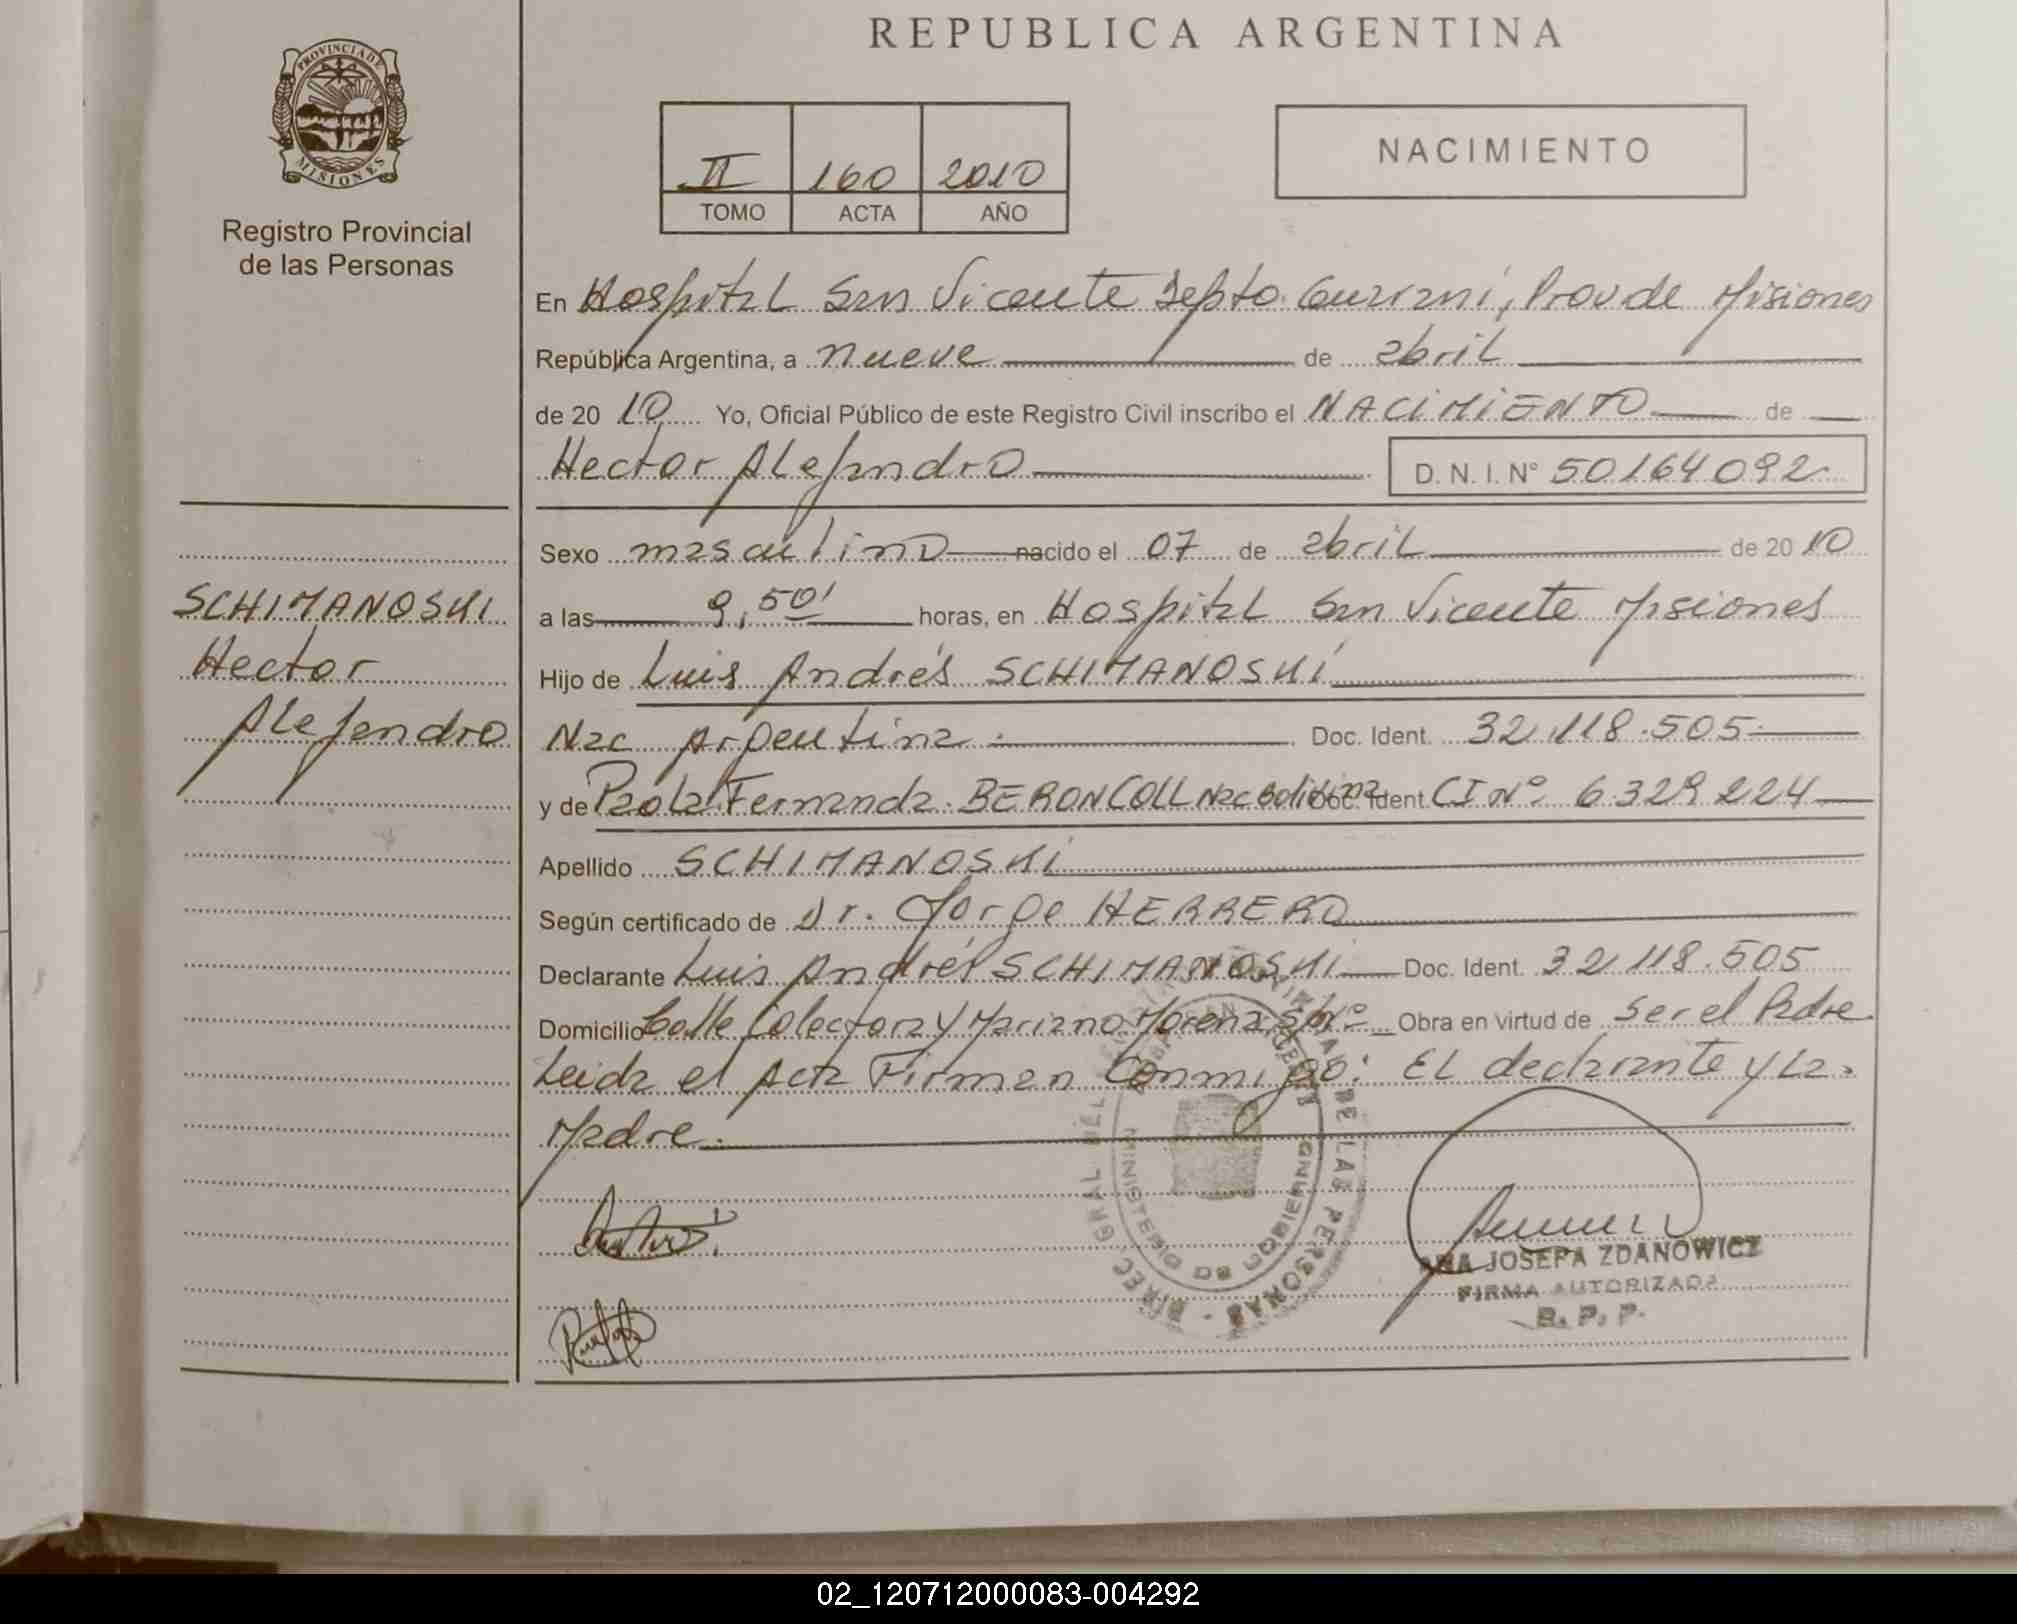 REPUBLICA ARGENTINA
PROVINCIA DE
MISIONES
Registro Provincial
de las Personas
II 160 2010
TOMO ACTA AÑO
NACIMIENTO
En Hospital San Vicente Depto. Guarani, Prov de Misiones
República Argentina, a nueve de abril
de 20 10 Yo, Oficial Público de este Registro Civil inscribo el NACIMIENTO de
Hector Alejandro D. N. I. N° 50164092
Sexo masculino nacido el 07 de abril de 20 10
a las 9,50' horas, en Hospital San Vicente Misiones
Hijo de Luis Andrés SCHIMANOSKI
Nac Argentina. Doc. Ident. 32.118.505
y de Paola Fernanda BERON COLL Nac Boliviana Doc. Ident. CI N° 6.329.224
Apellido SCHIMANOSKI
Según certificado de Dr. Jorge HERRERO
Declarante Luis Andrés SCHIMANOSKI Doc. Ident. 32.118.505
Domicilio Calle Colectora y Mariano Moreno S/N° Obra en virtud de Ser el Padre
Leida el Acta Firman Conmigo: EL declarante y La
Madre.
SCHIMANOSKI
Hector
Alejandro
DIREC. GRAL DEL DE LAS PERSONAS
MINISTERIO DE GOBIERNO
ANA JOSEFA ZDANOWICZ
FIRMA AUTORIZADA
R. P. P.
02_120712000083-004292